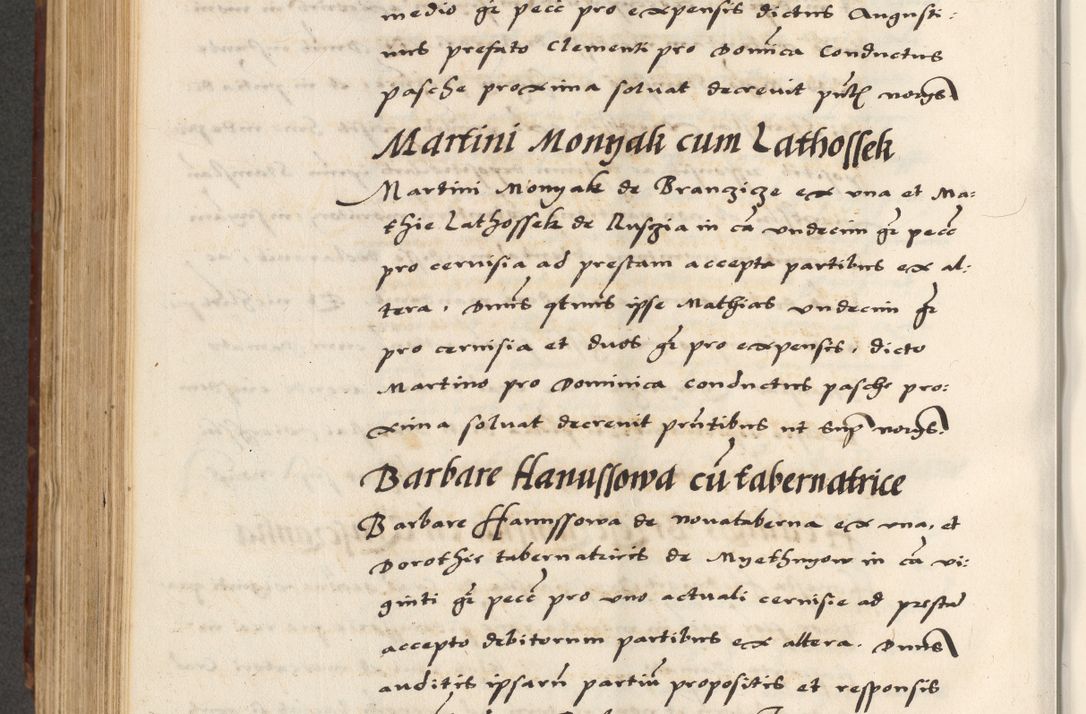 medio gr pecc pro expensis dictus Augusti:
nus prefato Clementi pro Domica Conductus
pasche proxima soluat decreuit pntl norgs
Martini Monyak cum Lathossek
Martini Monyak de Branczicze ex una et Ma:
thie Lathossek de Ruszia in ca undecim gr pecc
pro ceruisia ad prestam accepta partibus ex al:
tera, Dnus qtnus ipse Mathias undecim gr
pro ceruisia et duos gr pro expensis, dicto
Martino pro Dominica conductus pasche pro:
xima soluat decreuit pntibus ut sup norgs
Barbare Hanussowa cu tabernatrice
Barbare Hanussowa de nouataberna ex una, et
Dorothee tabernatricis de Myethnyow in ca vi:
ginti gr pecc pro uno actuali ceruisie ad presta
accepto debitorum partibus ex altera. Dnus
auditis ipsaru partiu propositis et responsis